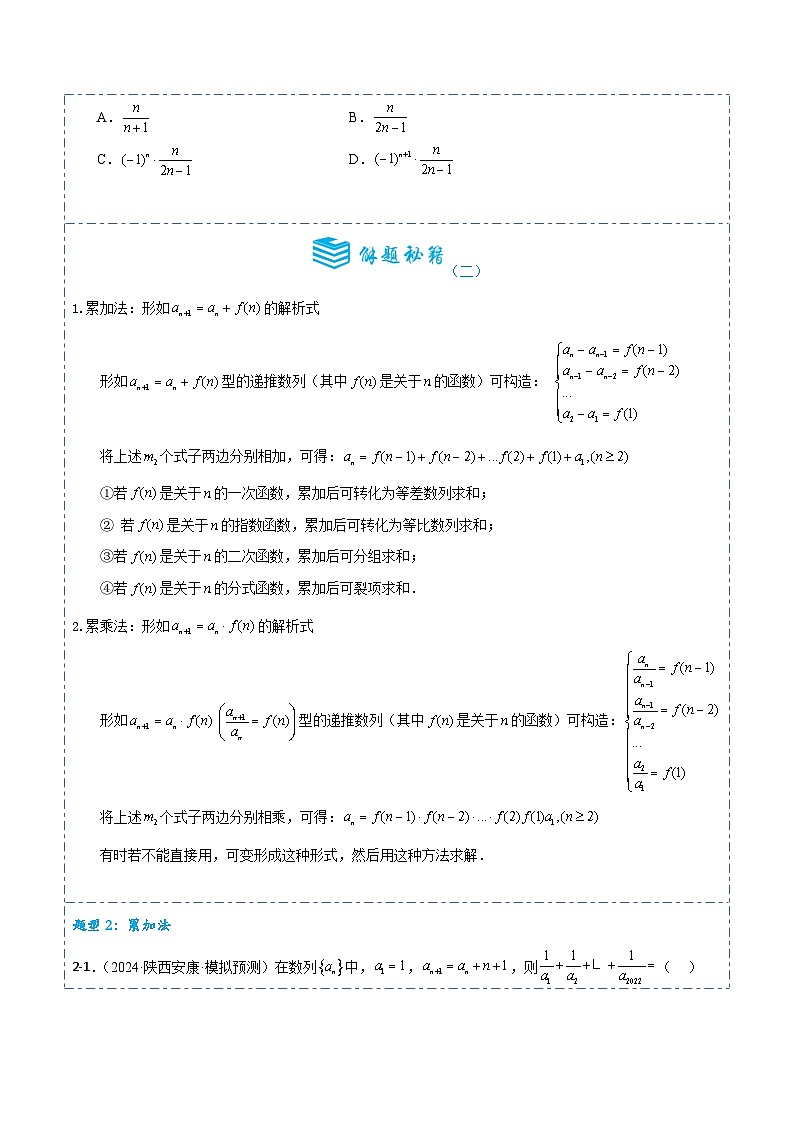 A. n/(n+1) B. n/(2n−1)
C. (−1)^n · n/(2n−1) D. (−1)^{n+1} · n/(2n−1)
解题秘籍 (二)
1.累加法：形如 a_{n+1} = a_n + f(n) 的解析式
形如 a_{n+1} = a_n + f(n) 型的递推数列（其中 f(n) 是关于 n 的函数）可构造： { a_n − a_{n−1} = f(n−1)
a_{n−1} − a_{n−2} = f(n−2)
...
a_2 − a_1 = f(1)
将上述 m_2 个式子两边分别相加，可得： a_n = f(n−1) + f(n−2) + ...f(2) + f(1) + a_1,(n ≥ 2)
①若 f(n) 是关于 n 的一次函数，累加后可转化为等差数列求和；
② 若 f(n) 是关于 n 的指数函数，累加后可转化为等比数列求和；
③若 f(n) 是关于 n 的二次函数，累加后可分组求和；
④若 f(n) 是关于 n 的分式函数，累加后可裂项求和．
2.累乘法：形如 a_{n+1} = a_n · f(n) 的解析式
形如 a_{n+1} = a_n · f(n) (a_{n+1}/a_n = f(n)) 型的递推数列（其中 f(n) 是关于 n 的函数）可构造： { a_n/a_{n−1} = f(n−1)
a_{n−1}/a_{n−2} = f(n−2)
...
a_2/a_1 = f(1)
将上述 m_2 个式子两边分别相乘，可得： a_n = f(n−1) · f(n−2) · ... · f(2) f(1)a_1,(n ≥ 2)
有时若不能直接用，可变形成这种形式，然后用这种方法求解．
题型 2：累加法
2-1.（2024·陕西安康·模拟预测）在数列 {a_n} 中， a_1 = 1 ， a_{n+1} = a_n + n + 1 ，则 1/a_1 + 1/a_2 + L + 1/a_{2022} = （ ）